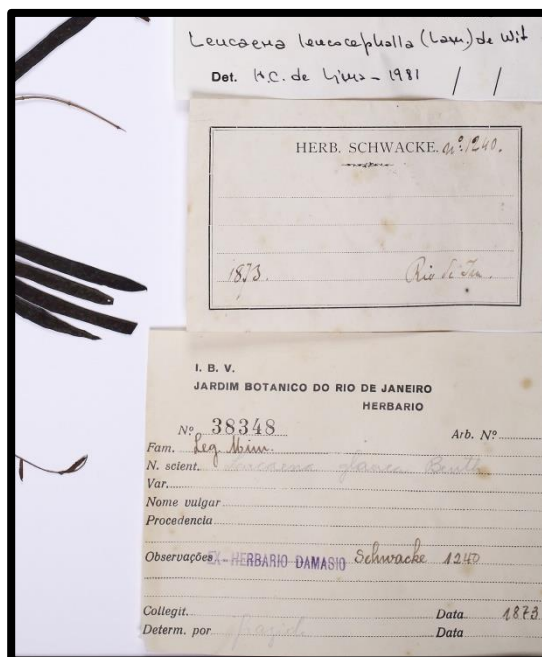 Leucaena leucocephalla (Lam.) de Wit
Det. H.C. de Lima - 1981 / /
HERB. SCHWACKE. Nº 1240.
1873. Rio de
I. B. V.
JARDIM BOTANICO DO RIO DE JANEIRO
HERBARIO
Nº 38348 Arb. Nº
Fam. Leg. Mim.
N. scient. Leucaena glauca Benth
Var.
Nome vulgar
Procedencia
Observações EX-HERBARIO DAMASIO Schwacke 1240
Collegit. Data 1873
Determ. por Data